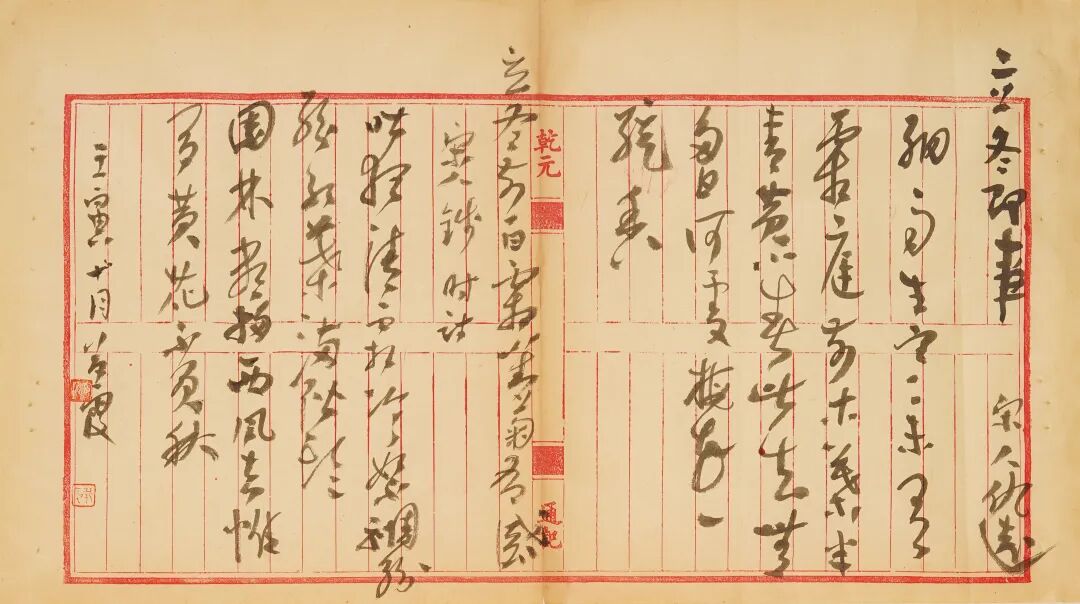 立冬即事 宋人仇遠
細雨生寒未有
霜庭前木葉半
青黃小春此去無
多日何處梅花一
綻香
乾元
通記
立冬前一日霜對菊有感
宋人錢時詩
昨夜清霜冷絮裯紛
紛紅葉滿階頭
園林盡掃西風去惟
有黃花不負秋
壬寅十月